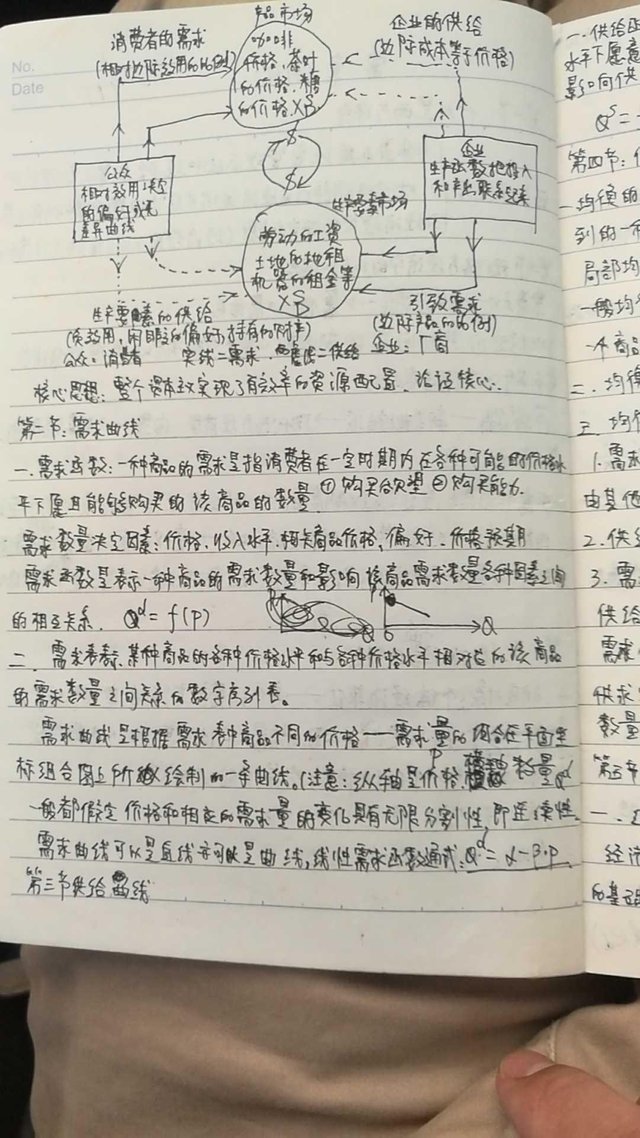 No.
Date
产品市场
消费者的需求
(相对边际效用的比例)
咖啡
价格、茶叶
的价格、糖
的价格
企业的供给
(边际成本等于价格)
公众
相对效用决定
的偏好或无
差异曲线
企业
生产函数把投入
和产出联系起来
$
$
生产要素市场
劳动的工资
土地的地租
机器的租金等
生产要素的供给
(负效用,闲暇的偏好,持有的财产)
引致需求
(边际产品的比例)
公众:消费者 实线=需求 虚线=供给 企业:厂商
核心思想:整个资本主义实现了有效率的资源配置、论证核心.
第二节:需求曲线
一.需求函数:一种商品的需求是指消费者在一定时期内在各种可能的价格水
平下愿且能够购买的该商品的数量 ①购买欲望 ②购买能力.
需求数量决定因素:价格、收入水平、相关商品价格、偏好、价格预期
需求函数是表示一种商品的需求数量和影响该商品需求数量各种因素之间
的相互关系. Qᵈ=f(P)
P
0
Q
二.需求表表示某种商品的各种价格水平和与各种价格水平相对应的该商品
的需求数量之间关系的数字序列表.
需求曲线是根据需求表中商品不同的价格——需求量的组合在平面坐
标组合图上所绘制的一条曲线.(注意:纵轴是价格P 横轴数量Qᵈ
一般都假定价格和相应的需求量的变化具有无限分割性,即连续性.
需求曲线可以是直线亦可以是曲线,线性需求函数通式:Qᵈ=α-β·P
第三节供给曲线
一.供给函
水平下愿意
影响供
Qˢ=
第四节:
一.均衡的
到的一
局部均
一般均
一个商品
二.均衡
三.均衡
1.需求
由其他
2.供
3.需
供给
需求
供求
数量
第五节
一.
经济
的基